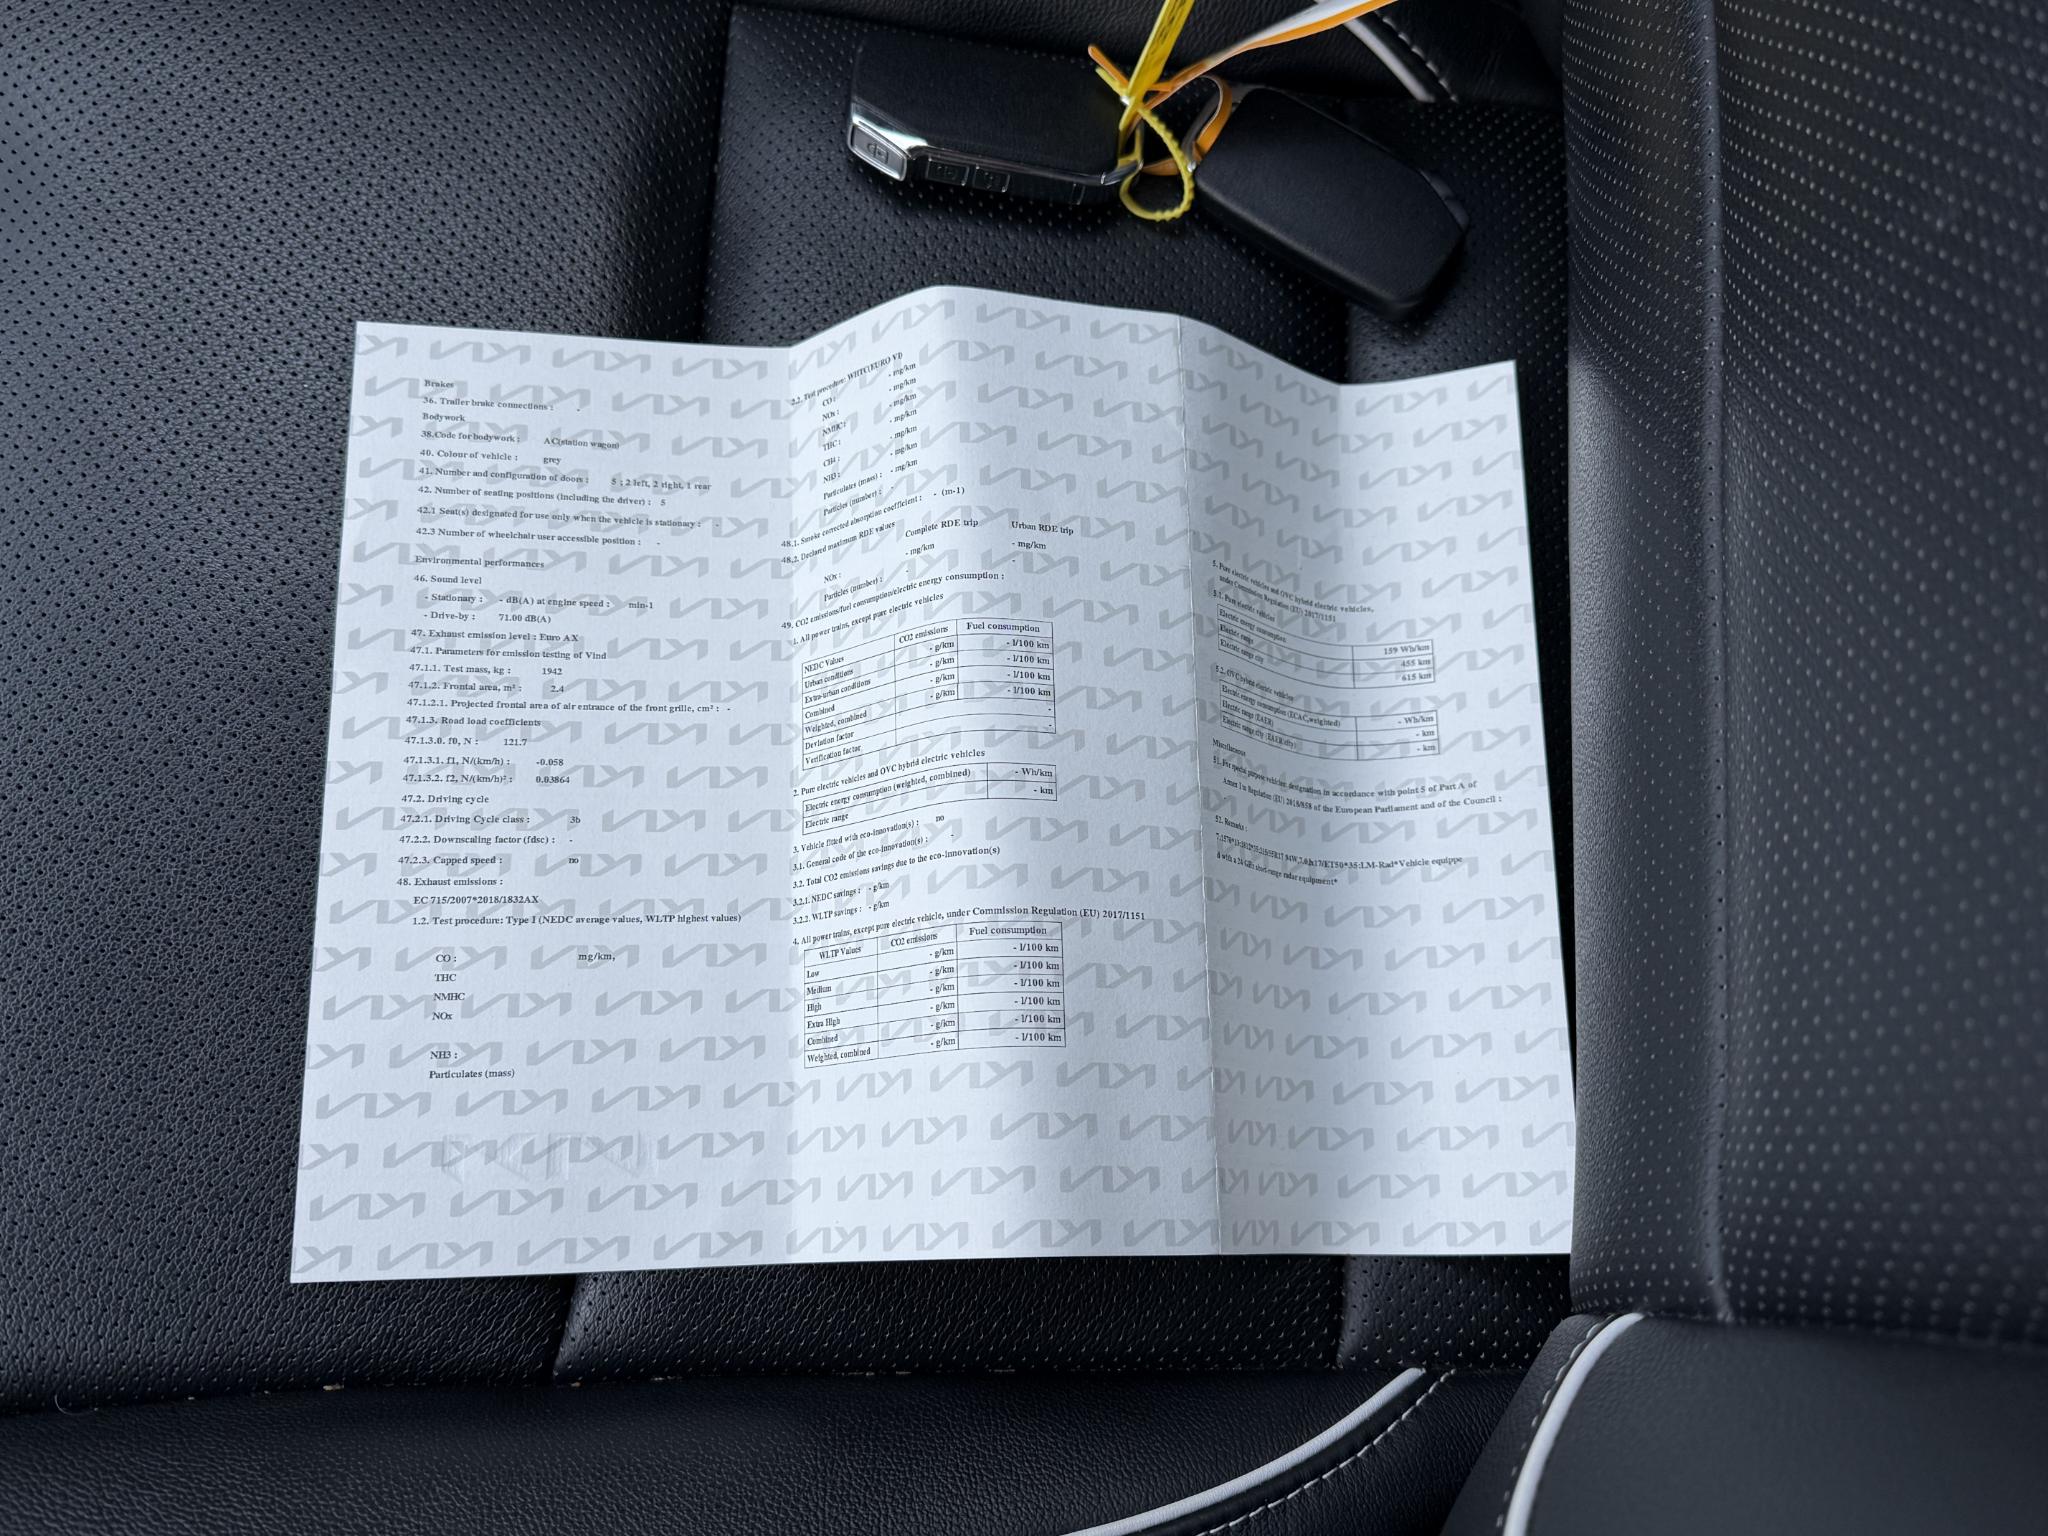 Brakes
36. Trailer brake connections : -
Bodywork
38.Code for bodywork : AC(station wagon)
40. Colour of vehicle : grey
41. Number and configuration of doors : 5 ; 2 left, 2 right, 1 rear
42. Number of seating positions (including the driver) : 5
42.1 Seat(s) designated for use only when the vehicle is stationary : -
42.3 Number of wheelchair user accessible position : -
Environmental performances
46. Sound level
- Stationary : - dB(A) at engine speed : min-1
- Drive-by : 71.00 dB(A)
47. Exhaust emission level : Euro AX
47.1. Parameters for emission testing of Vind
47.1.1. Test mass, kg : 1942
47.1.2. Frontal area, m² : 2.4
47.1.2.1. Projected frontal area of air entrance of the front grille, cm² : -
47.1.3. Road load coefficients
47.1.3.0. f0, N : 121.7
47.1.3.1. f1, N/(km/h) : -0.058
47.1.3.2. f2, N/(km/h)² : 0.03864
47.2. Driving cycle
47.2.1. Driving Cycle class : 3b
47.2.2. Downscaling factor (fdsc) : -
47.2.3. Capped speed : no
48. Exhaust emissions :
EC 715/2007*2018/1832AX
1.2. Test procedure: Type I (NEDC average values, WLTP highest values)
CO : mg/km,
THC
NMHC
NOx
NH3 :
Particulates (mass)
2.2. Test procedure: WHTC(EURO VI)
CO : - mg/km
NOx : - mg/km
NMHC : - mg/km
THC : - mg/km
CH4 : - mg/km
NH3 : - mg/km
Particulates (mass) : - mg/km
Particles (number) : -
48.1. Smoke corrected absorption coefficient : - (m-1)
48.2. Declared maximum RDE values Complete RDE trip Urban RDE trip
NOx : - mg/km - mg/km
Particles (number) : - -
49. CO2 emissions/fuel consumption/electric energy consumption :
1. All power trains, except pure electric vehicles
NEDC Values CO2 emissions Fuel consumption
Urban conditions - g/km - l/100 km
Extra-urban conditions - g/km - l/100 km
Combined - g/km - l/100 km
Weighted, combined - g/km - l/100 km
Deviation factor -
Verification factor -
2. Pure electric vehicles and OVC hybrid electric vehicles
Electric energy consumption (weighted, combined) - Wh/km
Electric range - km
3. Vehicle fitted with eco-innovation(s) : no
3.1. General code of the eco-innovation(s) : -
3.2. Total CO2 emissions savings due to the eco-innovation(s)
3.2.1. NEDC savings : - g/km
3.2.2. WLTP savings : - g/km
4. All power trains, except pure electric vehicle, under Commission Regulation (EU) 2017/1151
WLTP Values CO2 emissions Fuel consumption
Low - g/km - l/100 km
Medium - g/km - l/100 km
High - g/km - l/100 km
Extra High - g/km - l/100 km
Combined - g/km - l/100 km
Weighted, combined - g/km - l/100 km
5. Pure electric vehicles and OVC hybrid electric vehicles,
under Commission Regulation (EU) 2017/1151
5.1. Pure electric vehicles
Electric energy consumption 159 Wh/km
Electric range 455 km
Electric range city 615 km
5.2. OVC hybrid electric vehicles
Electric energy consumption (ECAC,weighted) - Wh/km
Electric range (EAER) - km
Electric range city (EAER city) - km
Miscellaneous
51. For special purpose vehicles: designation in accordance with point 5 of Part A of
Annex I to Regulation (EU) 2018/858 of the European Parliament and of the Council :
52. Remarks :
LM-Rad*Vehicle equippe
d with a 24 GHz short-range radar equipment*